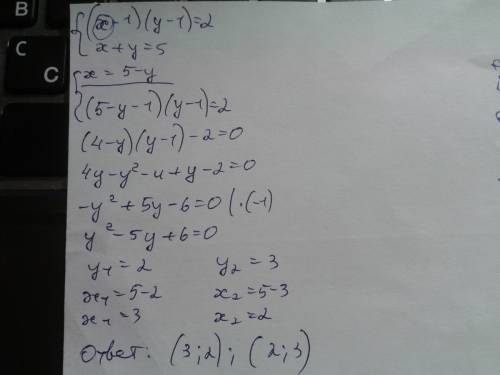 B
C
C
{(x-1)(y-1)=2
x+y=5
{x=5-y
(5-y-1)(y-1)=2
(4-y)(y-1)-2=0
4y-y²-4+y-2=0
-y²+5y-6=0 |·(-1)
y²-5y+6=0
y₁=2 y₂=3
x₁=5-2 x₂=5-3
x₁=3 x₂=2
Ответ: (3;2); (2;3)